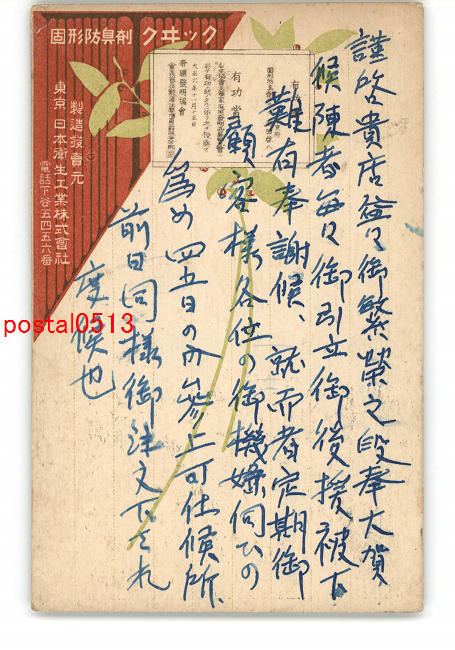 固形防臭剤 クヰック
製造發賣元
東京 日本衛生工業株式會社
電話下谷五四五六番
有功賞
大正六年十一月十五日
帝國發明協會
謹啓貴店益々御繁榮之段奉大賀
候陳者毎々御引立御後援被下
難有奉謝候、就而者定期御
顧客様各位の御機嫌伺ひの
為め四五日の内参上可仕候所、
前日同様御注文下され
度候也
postal0513